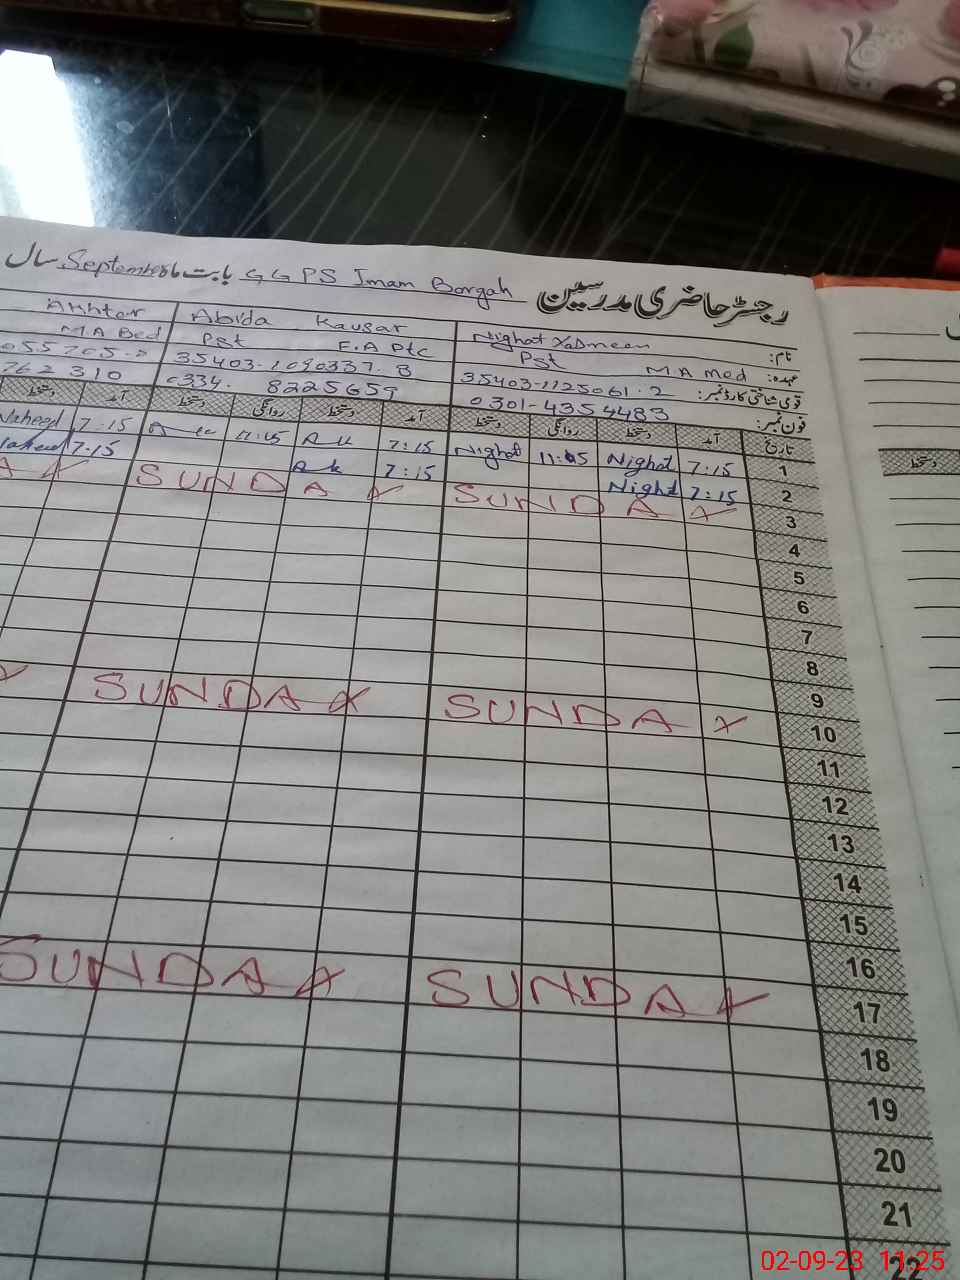 رجسٹر حاضری مدرسین GGPS Imam Borgah بابت ماہ September سال
نام: Nighat Yasmeen Abida Kausar Akhtar
عہدہ: Pst M.A Med Pst F.A Ptc M.A Bed
قومی شناختی کارڈ نمبر: 35403-1125061-2 35403-1090337-8
فون نمبر: 0301-4354483 0334- 8225659 762310
تاریخ آمد دستخط روانگی دستخط آمد دستخط روانگی دستخط آمد دستخط
1 7:15 Nighat 11:05 Nighat 7:15 7:15 Naheed
2 7:15 Nighat 7:15 7:15 Naheed
3 SUNDAY SUNDAY
4
5
6
7
8
9
10 SUNDAY SUNDAY
11
12
13
14
15
16
17 SUNDAY SUNDAY
18
19
20
21
22
دستخط
02-09-23 11:25